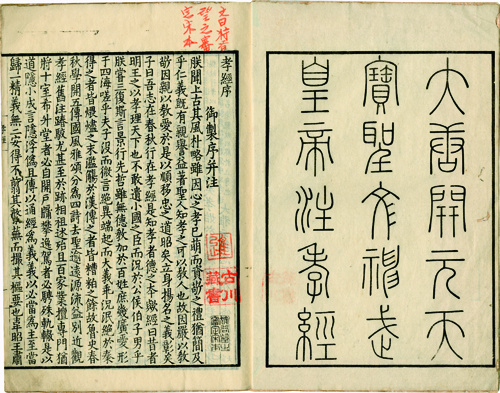 大唐開元天
寶聖文神武
皇帝注孝經
孝經序
御製序并注
朕聞上古其風朴略雖因心之孝已萌而資敬之禮猶簡及
乎仁義既有親譽益著聖人知孝之可以教人也故因嚴以教
敬因親以教愛於是以順移忠之道昭矣立身揚名之義彰矣
子曰吾志在春秋行在孝經是知孝者德之本歟經曰昔者
明王之以孝理天下也不敢遺小國之臣而況於公侯伯子男乎
朕嘗三復斯言景行先哲雖無德教加於百姓庶幾廣愛形
于四海嗟乎夫子沒而微言絕異端起而大義乖況泯絕於秦
得之者皆煨燼之末濫觴於漢傳之者皆糟粕之餘故魯史春
秋學開五傳國風雅頌分為四詩去聖逾遠源流益別近觀
孝經舊注踳駮尤甚至於跡相祖述殆且百家業擅專門猶
將十室希升堂者必自開戶牖攀逸駕者必騁殊軌轍是以
道隱小成言隱浮偽且傳以通經為義義以必當為主至當
歸一精義無二安得不翦其繁蕪而撮其樞要也韋昭王肅
古川
藏書